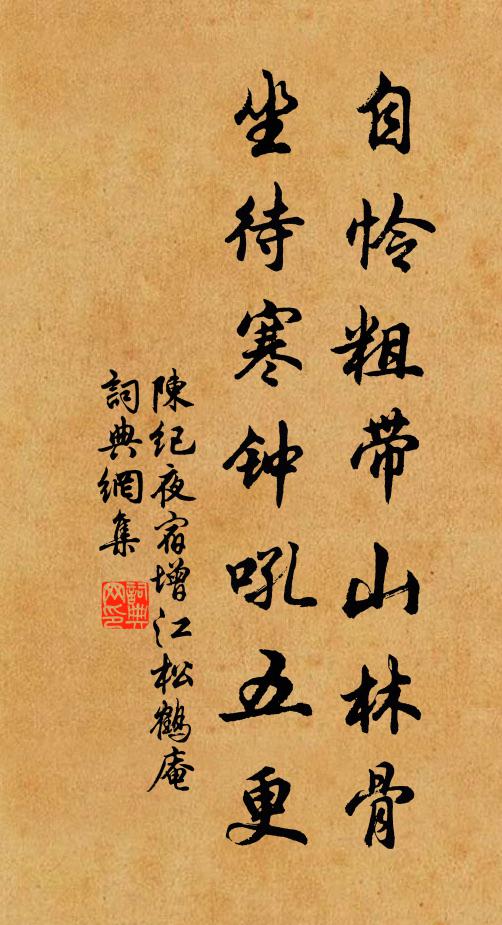 自怜粗带山林骨
坐待寒钟吼五更
陳纪夜宿增江松鶴庵
詞典網集
詞典网印